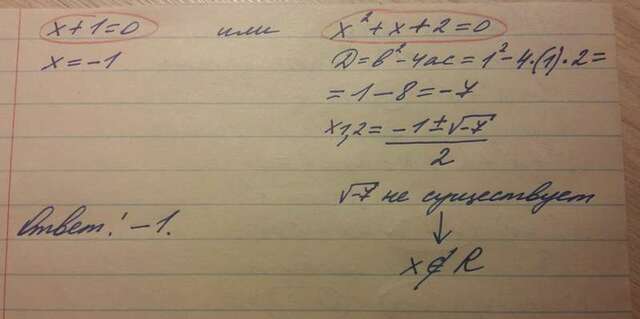 x+1=0 или x²+x+2=0
x=-1 D=b²-4ac=1²-4·(1)·2=
=1-8=-7
x1,2= (-1±√-7)/2
√-7 не существует
↓
Ответ: -1.
x∉R